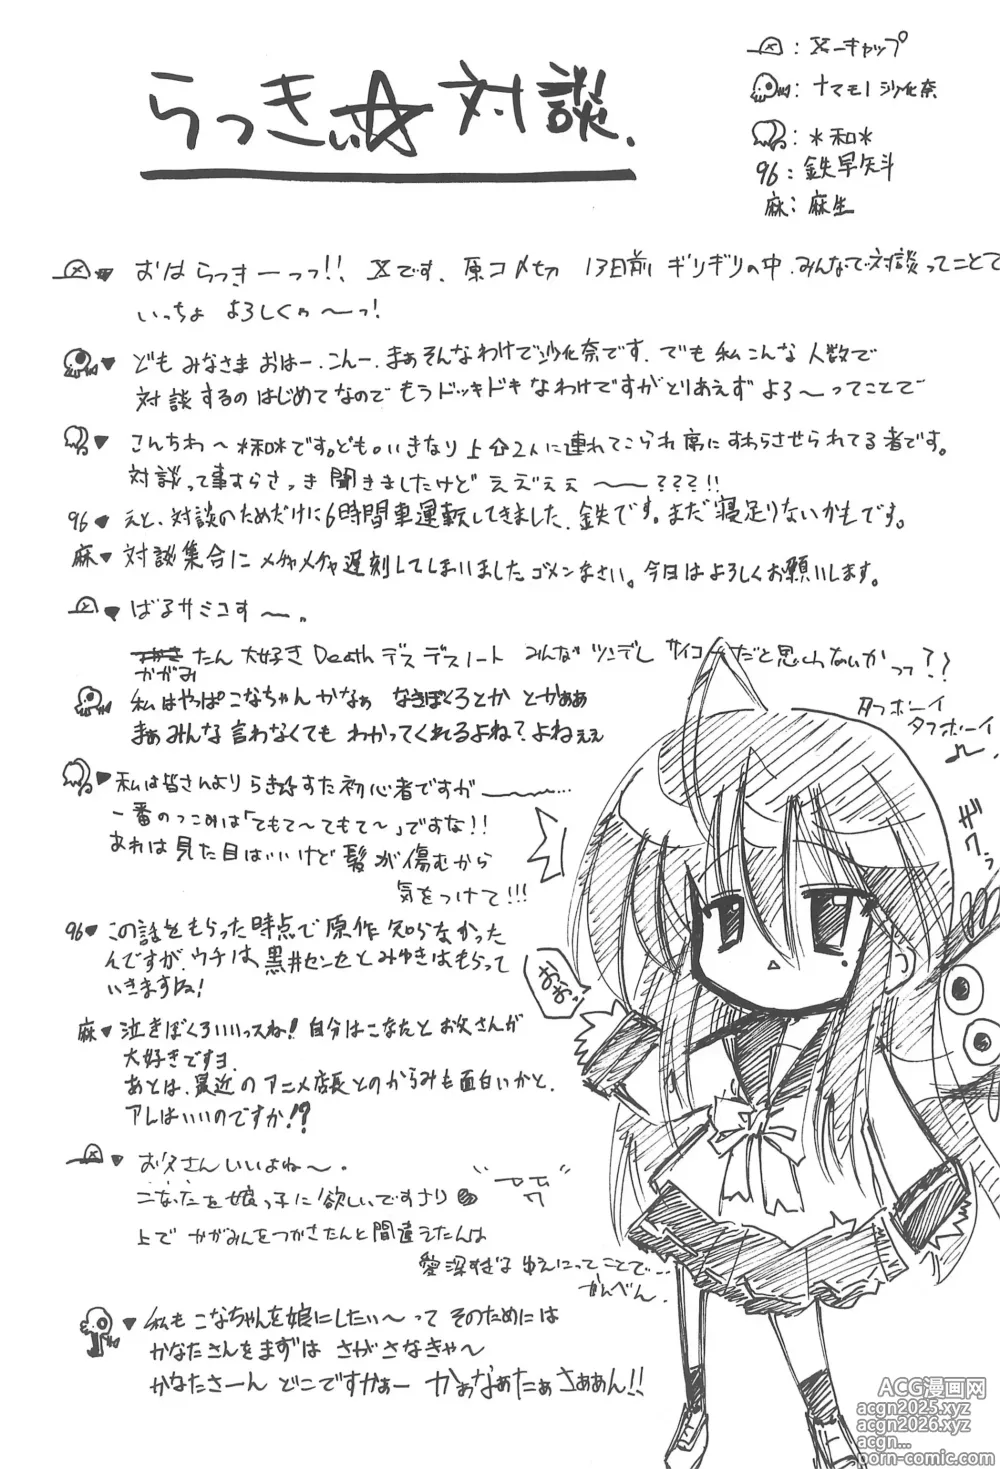 らっきぃ☆対談.
: X-キャップ
: ナマモノ沙化奈
: *和*
96: 鉄早矢斗
麻: 麻生
おはらっきーっっ!!、Xです、原コメ切 13日前 ギリギリの中、みんなで対談ってことで
いっちょ よろしくぅ〜っ!
ども みなさま おはー、こんー、まぁそんなわけで沙化奈です、でも 私こんな 人数で
対談するの はじめてなので もう ドッキドキ なわけですが とりあえず よろ〜ってことで
こんちわ〜*和*です。ども。いきなり上の2人に連れてこられ席にすわらさせられてる者です。
対談って事すらさっき 聞きましたけど えぇ゛ぇぇ 〜〜???!!
96♥ えと、対談のためだけに6時間車運転してきました、鉄です。まだ寝足りないかもです。
麻♥ 対談集合に メチャメチャ遅刻してしまいました。ゴメンなさい。今日はよろしくお願いします。
♥ ばるサミコす〜。
かがみたん 大好き Death デス デスノート みんな ツンデレ サイコーだと思わないかって??
♥ 私はやっぱ こなちゃん かなぁ なきぼくろとか とかぁぁ
まぁみんな 言わなくても わかってくれるよね?よねぇぇ
♥ 私は皆さんより らき☆すた初心者ですが〜〜…
一番のつっこみは「てもて〜てもて〜」ですな!!
あれは見た目はいいけど髪が傷むから
気をつけて!!!
96♥ この話をもらった時点で原作知らなかった
んですが、ウチは黒井センセとみゆきはもらって
いきますね!
麻♥ 泣きぼくろいいっスね! 自分はこなたとお父さんが
大好きですヨ
あとは、最近のアニメ店長とのからみも面白いかと、
アレはいいのですか!?
♥ お父さんいいよね〜。
こなたを娘っ子に欲しいですナリ
上でかがみんをつかさたんと間違えたんは
愛深すぎるゆえにってことで…
かんべん。
♥ 私もこなちゃんを娘にしたい〜って そのためには
かなたさんをまずは さがさなきゃ〜
かなたさーん どこですかぁー かぁなぁたぁさぁぁん!!
タフボーイ
タフボーイ
ギュ
おおっ
ACG漫画网
acgn2025.xyz
acgn2026.xyz
acgn...
porn-comic.com